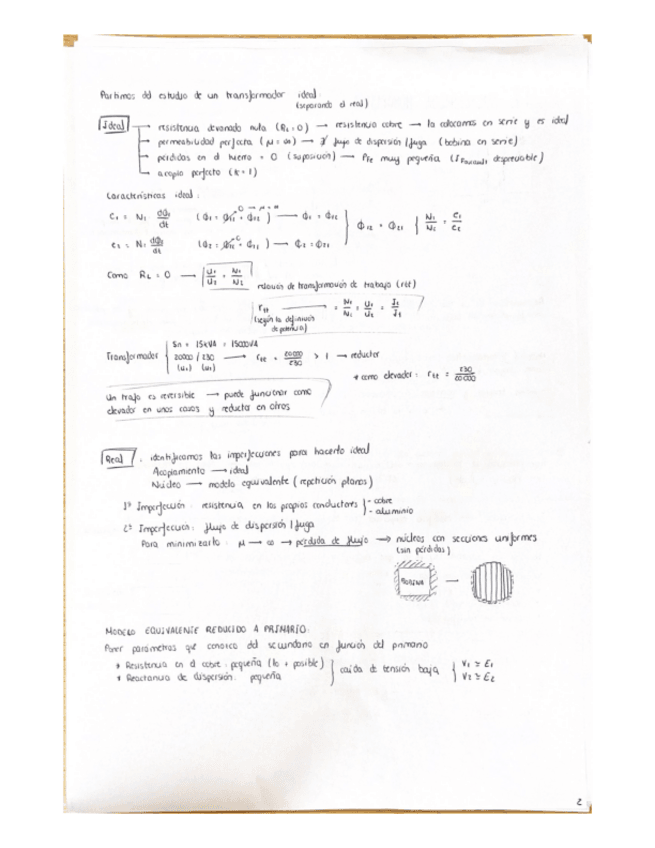 Partimos del estudio de un transformador ideal:
(separando el real)
Ideal → resistencia devanado nula (RL = 0) → resistencia cobre → la colocamos en serie y es ideal
→ permeabilidad perfecta (μ = ∞) → ∄ flujo de dispersión / fuga (bobina en serie)
→ pérdidas en el hierro = 0 (suposición) → PFe muy pequeña (I Foucault despreciable)
→ acoplo perfecto (k = 1)
Características ideal:
e1 = N1 dΦ1/dt
e2 = N2 dΦ2/dt
Como RL = 0 → U1/U2 = N1/N2 relación de transformación de trabajo (rtt)
rtt → = N1/N2 = U1/U2
(según la definición
de potencia)
Sn = 15kVA = 15000VA
Transformador 20000 / 230 → rtt = 20000/230 > 1 → reductor
(U1) (U2)
* como elevador: rtt = 230/20000
Un trafo es reversible → puede funcionar como
elevador en unos casos y reductor en otros
Real: identificamos las imperfecciones para hacerlo ideal
Acoplamiento → ideal
Núcleo → modelo equivalente (repetición planos)
1ª Imperfección: resistencia en los propios conductores - cobre
- aluminio
2ª Imperfección: flujo de dispersión / fuga
Para minimizarlo: μ → ∞ → pérdida de flujo → núcleos con secciones uniformes
(sin pérdidas)
BOBINA →
MODELO EQUIVALENTE REDUCIDO A PRIMARIO:
Poner parámetros que conozco del secundario en función del primario
* Resistencia en el cobre: pequeña (lo + posible)
* Reactancia de dispersión: pequeña
caída de tensión baja
V1 ≃ E1
V2 ≃ E2
2